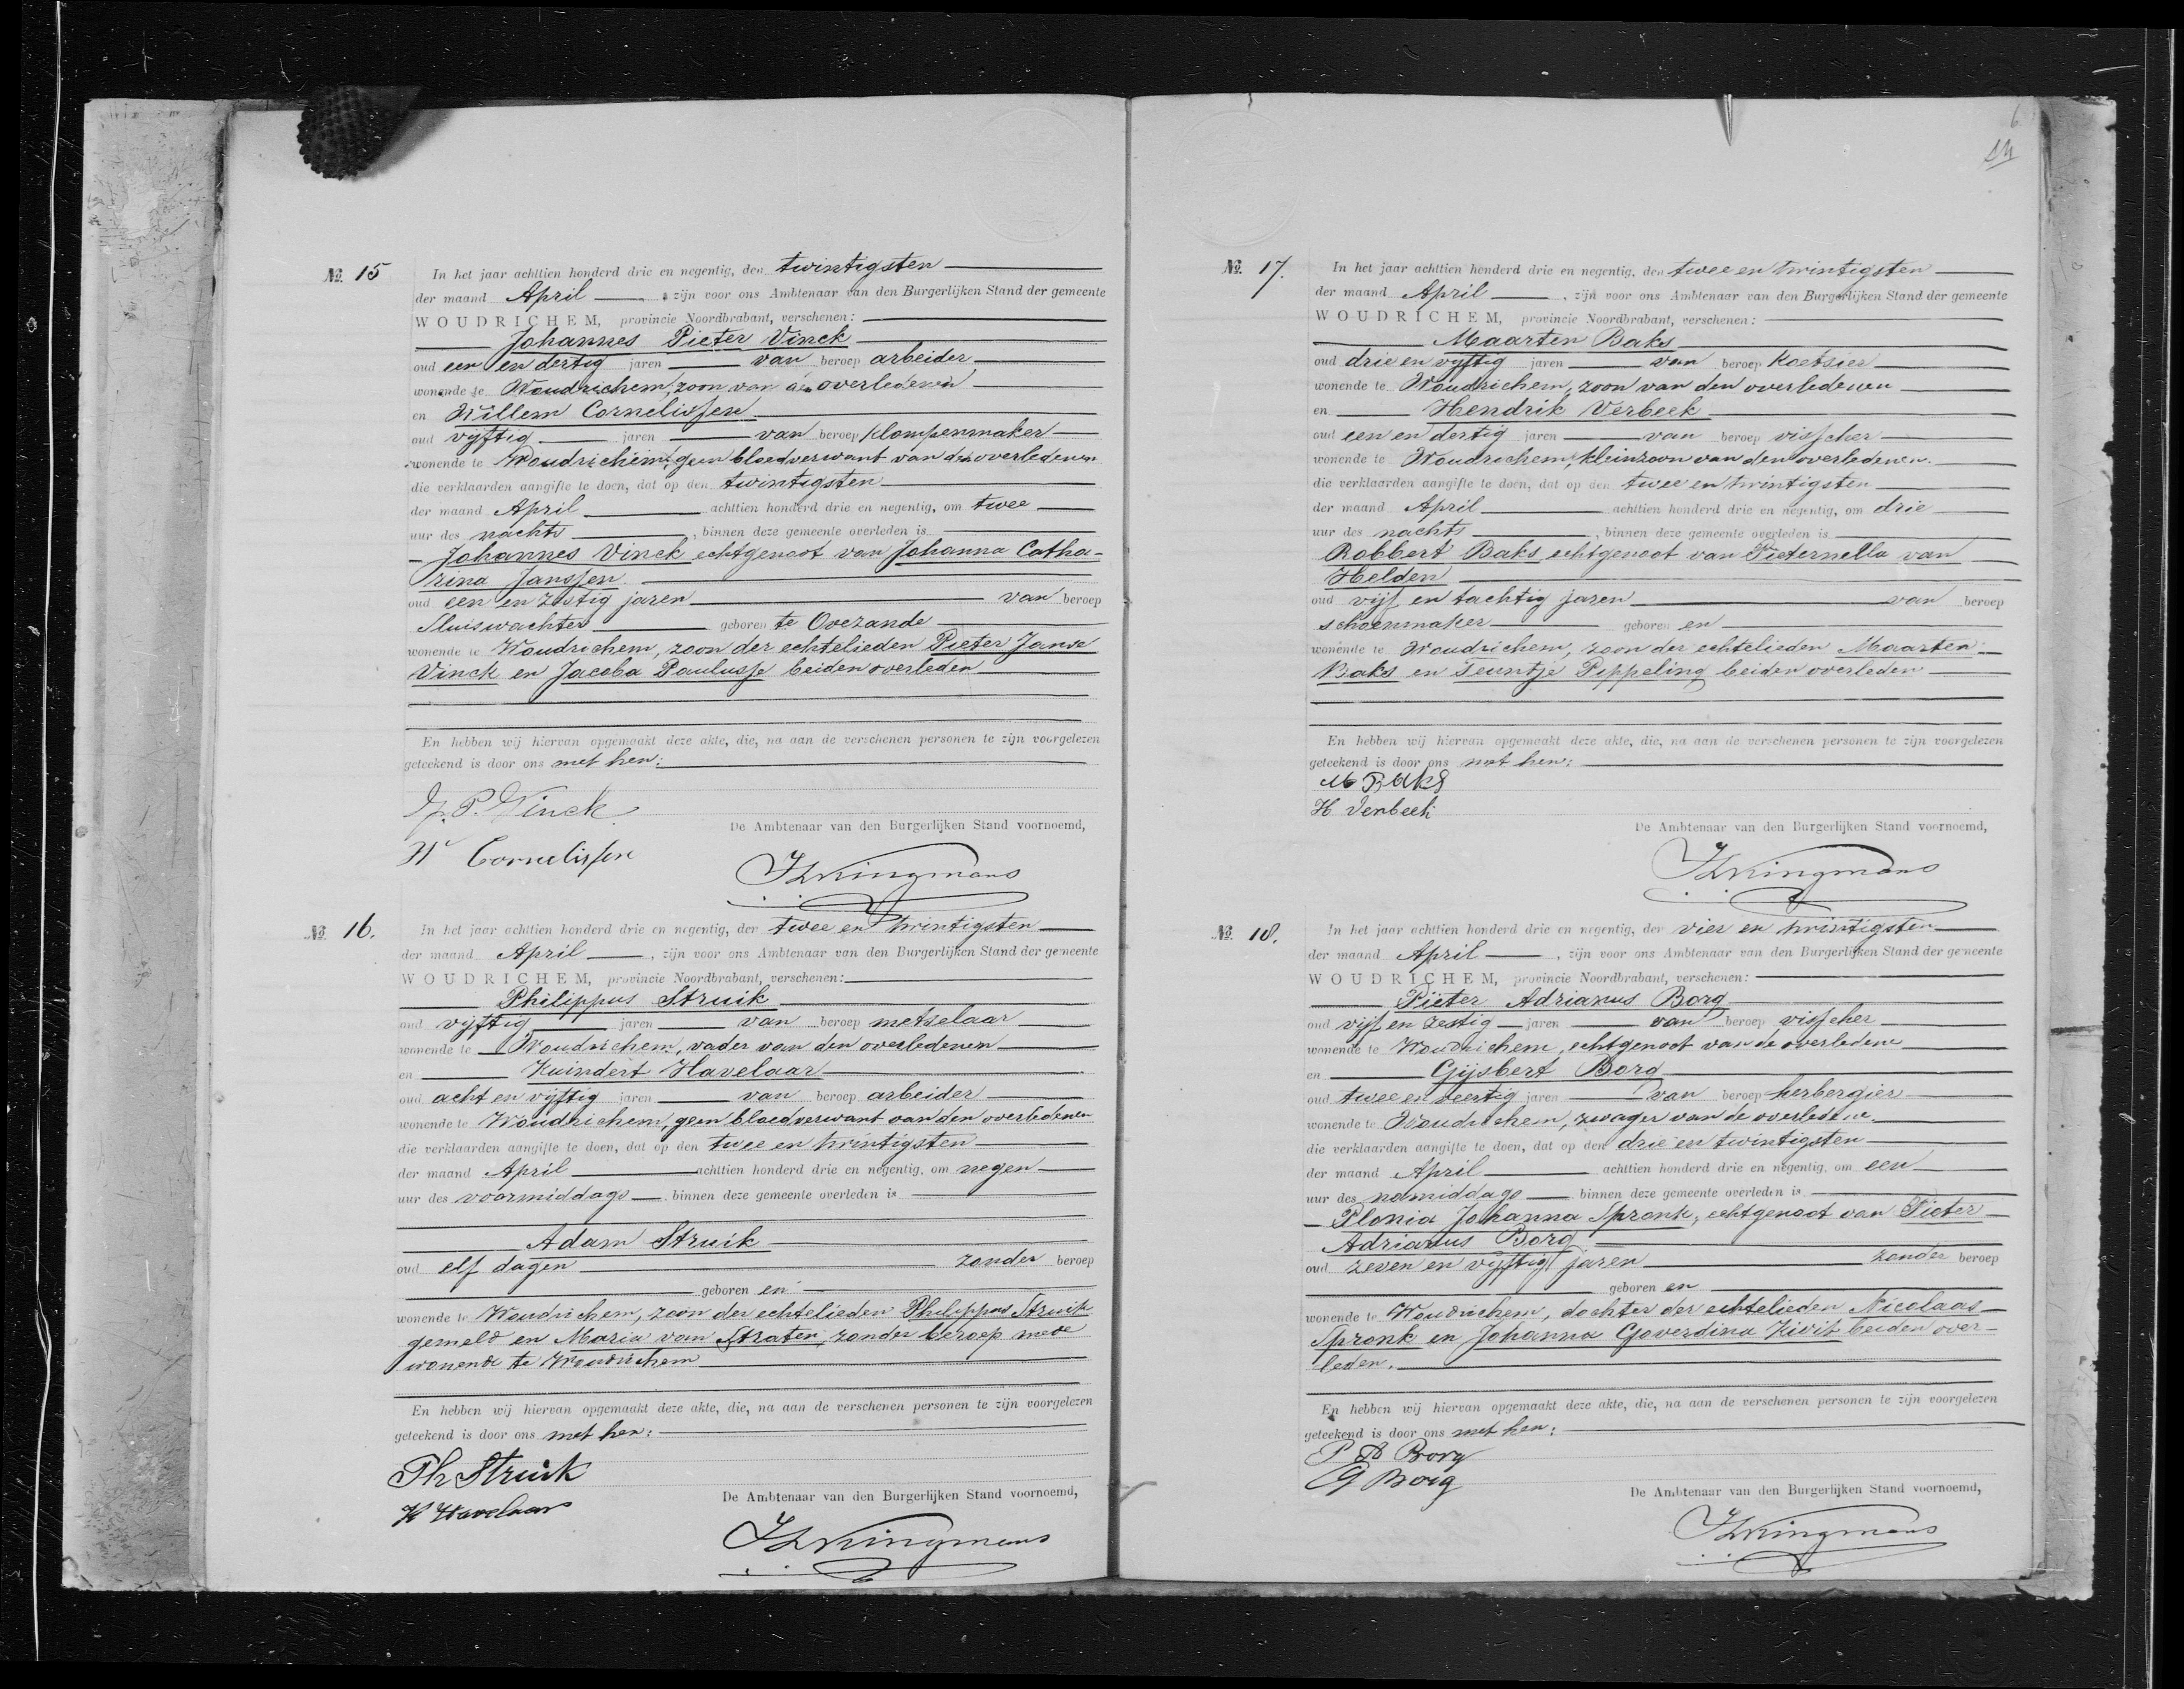 № 15
In het jaar achttien honderd drie en negentig, den twintigsten
der maand April, zijn voor ons Ambtenaar van den Burgerlijken Stand der gemeente
WOUDRICHEM, provincie Noordbrabant, verschenen:
Johannes Pieter Vinck
oud een en dertig jaren van beroep arbeider
wonende te Woudrichem, zoon van den overledenen
en Willem Cornelissen
oud vijftig jaren van beroep klompenmaker
wonende te Woudrichem, geen bloedverwant van den overledenen
die verklaarden aangifte te doen, dat op den twintigsten
der maand April achttien honderd drie en negentig, om twee
uur des nachts, binnen deze gemeente overleden is
Johannes Vinck echtgenoot van Johanna Catha-
rina Janssen
oud een en zestig jaren van beroep
Sluiswachter geboren te Ovezande
wonende te Woudrichem, zoon der echtelieden Pieter Janse
Vinck en Jacoba Paulusse beiden overleden
En hebben wij hiervan opgemaakt deze akte, die, na aan de verschenen personen te zijn voorgelezen
geteekend is door ons met hen:
J. P. Vinck
W Cornelissen
De Ambtenaar van den Burgerlijken Stand voornoemd,
№ 16.
In het jaar achttien honderd drie en negentig, den twee en twintigsten
der maand April, zijn voor ons Ambtenaar van den Burgerlijken Stand der gemeente
WOUDRICHEM, provincie Noordbrabant, verschenen:
Philippus Struik
oud vijftig jaren van beroep metselaar
wonende te Woudrichem, vader van den overledenen
en Kuindert Havelaar
oud acht en vijftig jaren van beroep arbeider
wonende te Woudrichem, geen bloedverwant van den overledenen
die verklaarden aangifte te doen, dat op den twee en twintigsten
der maand April achttien honderd drie en negentig, om negen
uur des voormiddags, binnen deze gemeente overleden is
Adam Struik
oud elf dagen zonder beroep
geboren en
wonende te Woudrichem, zoon der echtelieden Philippus Struik
gemeld en Maria van Straten, zonder beroep mede
wonende te Woudrichem
En hebben wij hiervan opgemaakt deze akte, die, na aan de verschenen personen te zijn voorgelezen
geteekend is door ons met hen:
Ph Struik
K Havelaar
De Ambtenaar van den Burgerlijken Stand voornoemd,
№ 17.
In het jaar achttien honderd drie en negentig, den twee en twintigsten
der maand April, zijn voor ons Ambtenaar van den Burgerlijken Stand der gemeente
WOUDRICHEM, provincie Noordbrabant, verschenen:
Maarten Baks
oud drie en vijftig jaren van beroep Koetsier
wonende te Woudrichem, zoon van den overledenen
en Hendrik Verbeek
oud een en dertig jaren van beroep visscher
wonende te Woudrichem, kleinzoon van den overledenen.
die verklaarden aangifte te doen, dat op den twee en twintigsten
der maand April achttien honderd drie en negentig, om drie
uur des nachts, binnen deze gemeente overleden is
Robbert Baks echtgenoot van Pieternella van
Helden
oud vijf en tachtig jaren van beroep
schoenmaker geboren en
wonende te Woudrichem, zoon der echtelieden Maarten
Baks en Teuntje Pippeling beiden overleden
En hebben wij hiervan opgemaakt deze akte, die, na aan de verschenen personen te zijn voorgelezen
geteekend is door ons met hen:
M Baks
H Verbeek
De Ambtenaar van den Burgerlijken Stand voornoemd,
№ 18.
In het jaar achttien honderd drie en negentig, den vier en twintigsten
der maand April, zijn voor ons Ambtenaar van den Burgerlijken Stand der gemeente
WOUDRICHEM, provincie Noordbrabant, verschenen:
Pieter Adrianus Borg
oud vijf en zestig jaren van beroep visscher
wonende te Woudrichem, echtgenoot van de overledene
en Gijsbert Borg
oud twee en veertig jaren van beroep herbergier
wonende te Woudrichem, zwager van de overledene.
die verklaarden aangifte te doen, dat op den drie en twintigsten
der maand April achttien honderd drie en negentig, om een
uur des namiddags binnen deze gemeente overleden is
Plonia Johanna Spronk, echtgenoot van Pieter
Adrianus Borg
oud zeven en vijftig jaren zonder beroep
geboren en
wonende te Woudrichem, dochter der echtelieden Nicolaas
Spronk en Johanna Goverdina Kivit beiden over-
leden.
En hebben wij hiervan opgemaakt deze akte, die, na aan de verschenen personen te zijn voorgelezen
geteekend is door ons met hen:
Borg
G Borg
De Ambtenaar van den Burgerlijken Stand voornoemd,